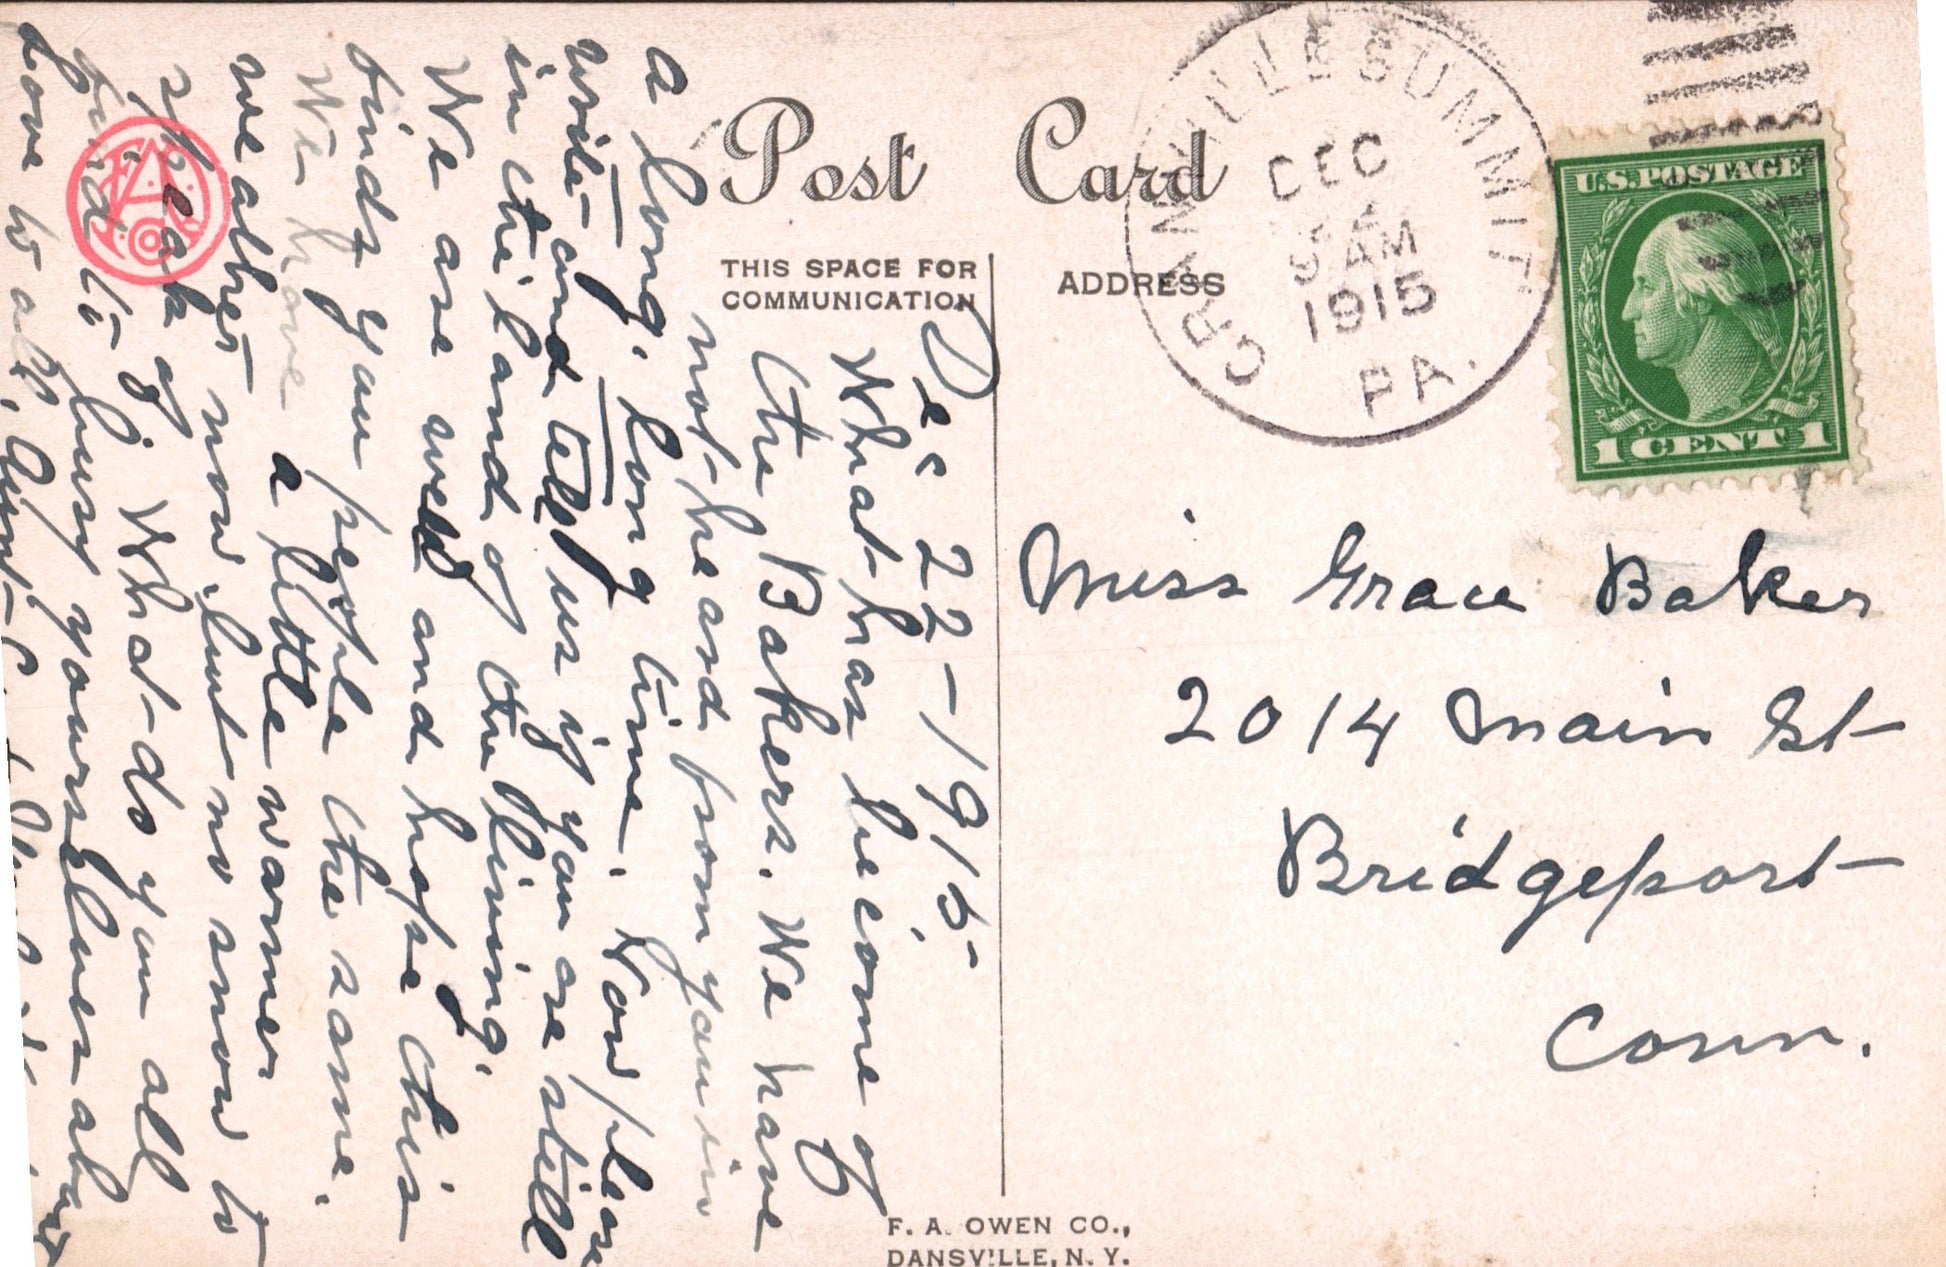 Post Card
THIS SPACE FOR
COMMUNICATION
ADDRESS
CRANVILLE SUMMIT
DEC
AM
1915
PA.
U.S. POSTAGE
1 CENT 1
Miss Grace Baker
2014 Main St
Bridgeport
Conn.
Dec 22-1915-
What has become of
the Bakers. We have
not heard from you in
a long, long time. Now please
write and tell us if you are still
in the land of the living.
We are well and hope this
finds you people the same.
We have a little warmer
weather now, but no snow to
speak of. What do you all
find to busy yourselves about
Love to all, Aunt
F. A. OWEN CO.,
DANSVILLE, N. Y.